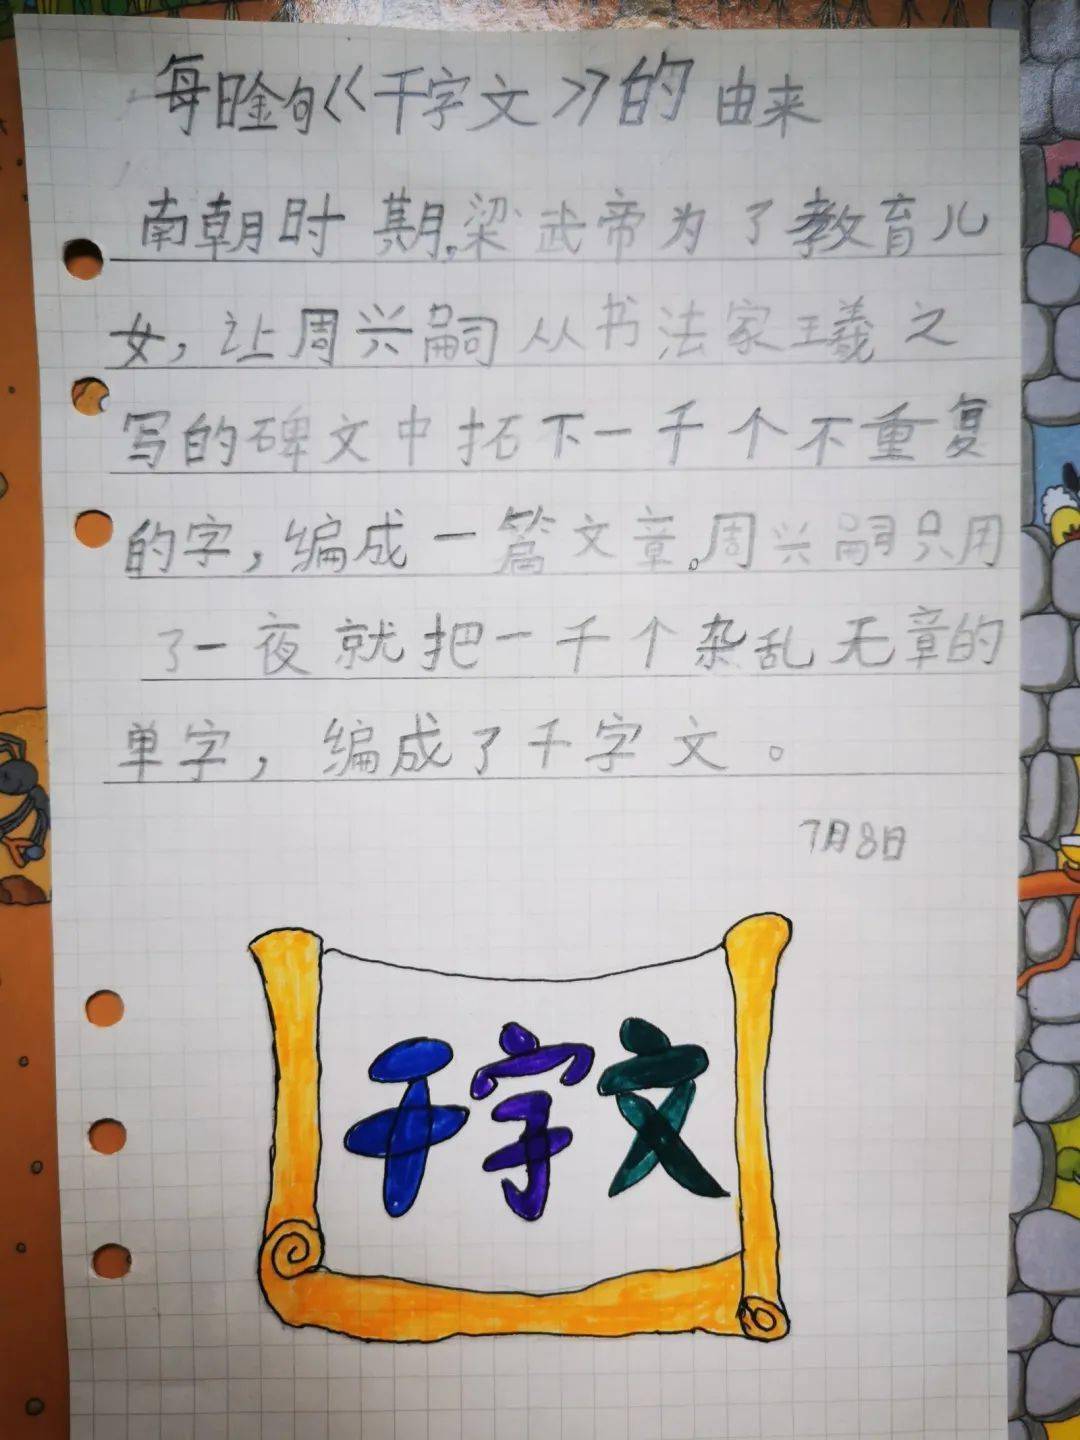 每日金句《千字文》的由来
南朝时期,梁武帝为了教育儿
女，让周兴嗣从书法家王羲之
写的碑文中拓下一千个不重复
的字，编成一篇文章。周兴嗣只用
了一夜就把一千个杂乱无章的
单字，编成了千字文。
7月8日
千字文